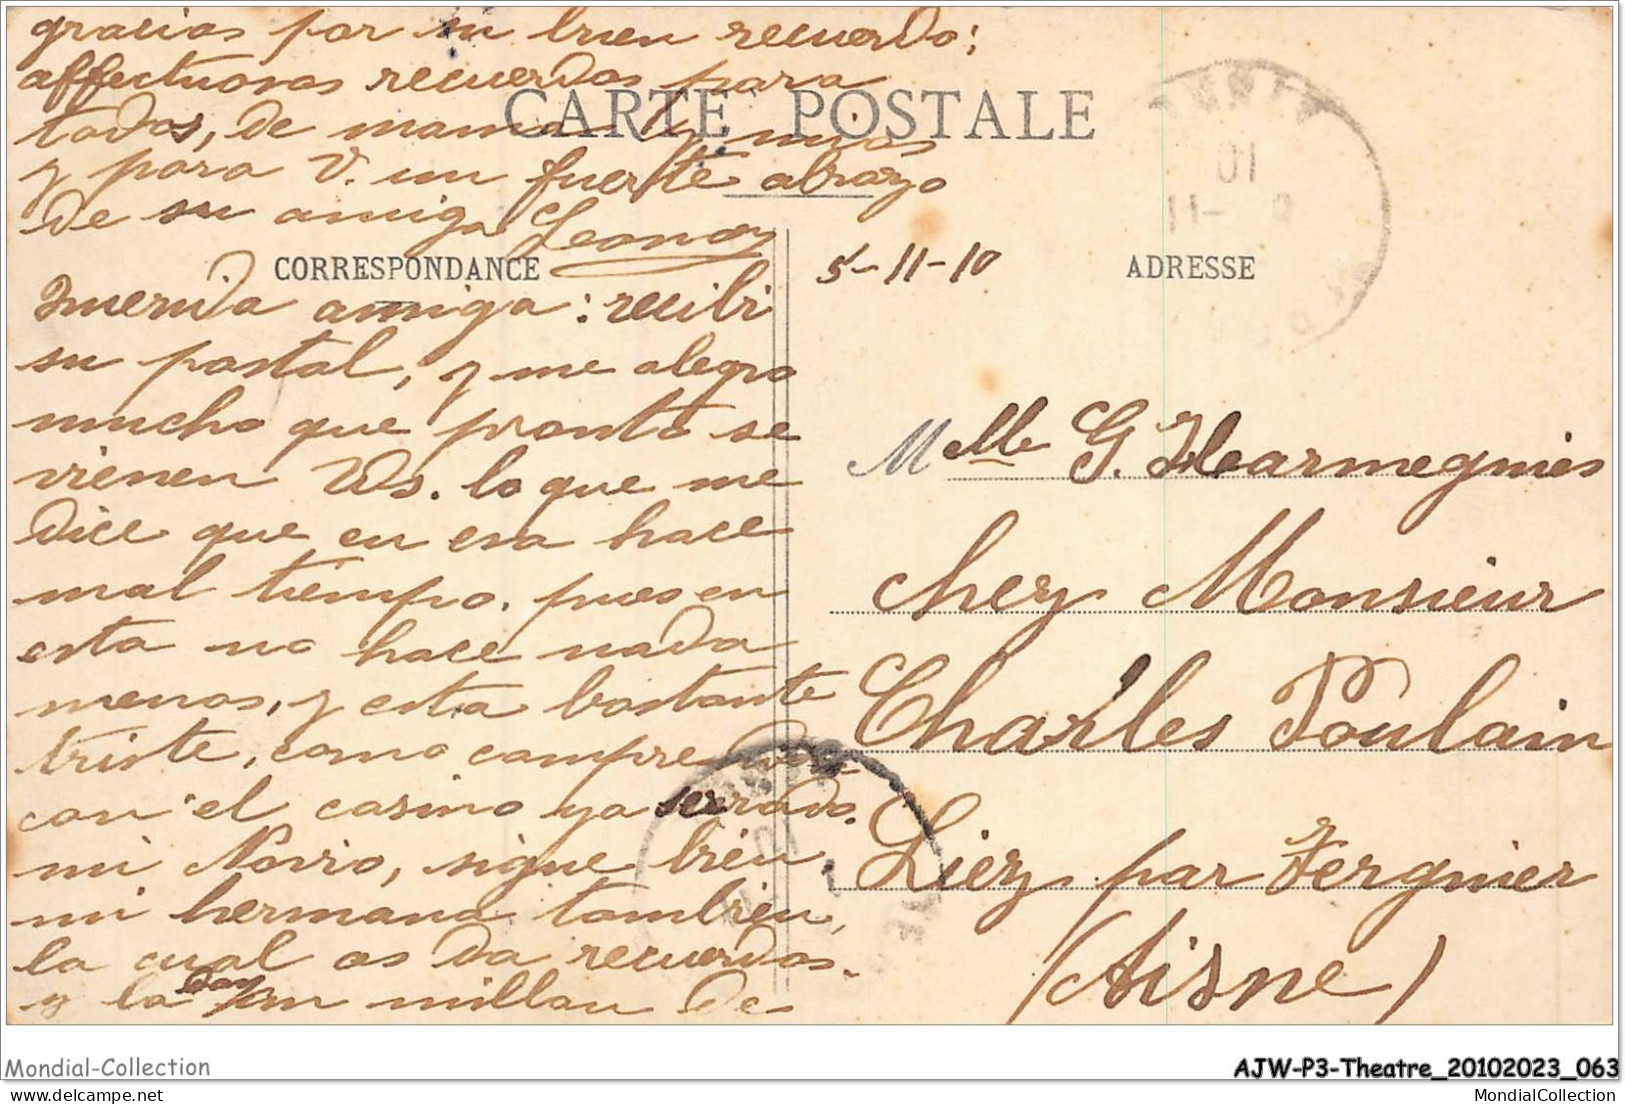 gracias por su bien recuerdo;
affectuosos recuerdos para
todos, de mama y mios
y para V. un fuerte abrazo
de su amiga Leonor
CARTE POSTALE
CORRESPONDANCE
5-11-10
ADRESSE
Querida amiga: recibi
su postal, y me alegro
mucho que pronto se
vienen Vds. lo que me
dice que en esa hace
mal tiempo, pues en
esta no hace nada
menos, y esta bastante
triste, como compre
con el casino ya serrado.
mi Novio, sigue bien.
mi hermana tambien,
la cual os da recuerdos.
y la doy un millon de
Melle G. Harmegnies
chez Monsieur
Charles Poulain
Liez par Fergnier
(Aisne)
Mondial-Collection
AJW-P3-Theatre_20102023_063
delcampe.net
MondialCollection